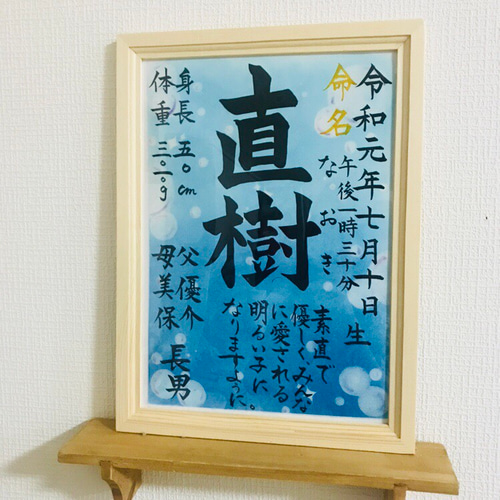 令和元年七月十日 生
午後一時三十分
命名
なおき
直樹
素直で
優しく、みんな
に愛される
明るい子に
なりますように。
身長 五〇cm
体重 三〇一〇g
父 優介
母 美保
長男